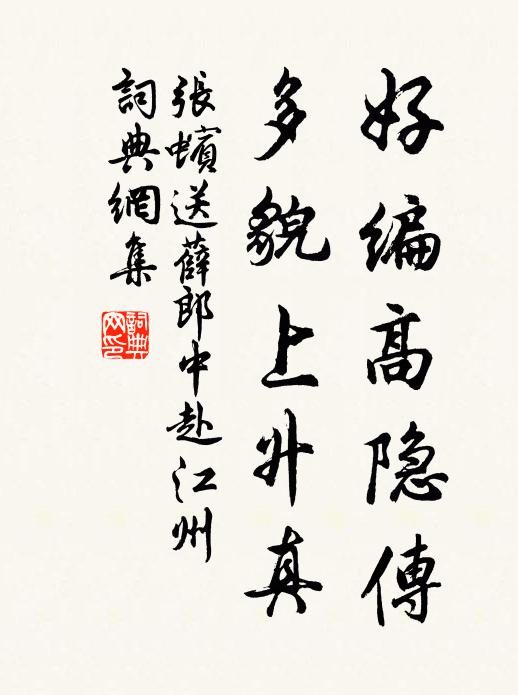 好编高隐傳
多貌上升真
張蠙送薛郎中赴江州
詞典網集
詞典網印